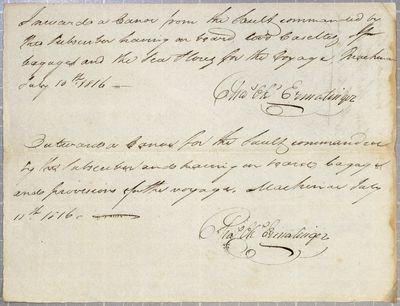 Inwards a Canoe from the Sault commanded by
the Subscriber having on board
bagages and the Sea Stores for the Voyage Mackinac
July 10th 1816 —
Chas Oks Ermatinger
Outwards a Canoe for the Sault commanded
by the Subscriber and having on board bagages
and provisions for the voyage, Mackinac July
11th 1816. —
Chas Oks Ermatinger